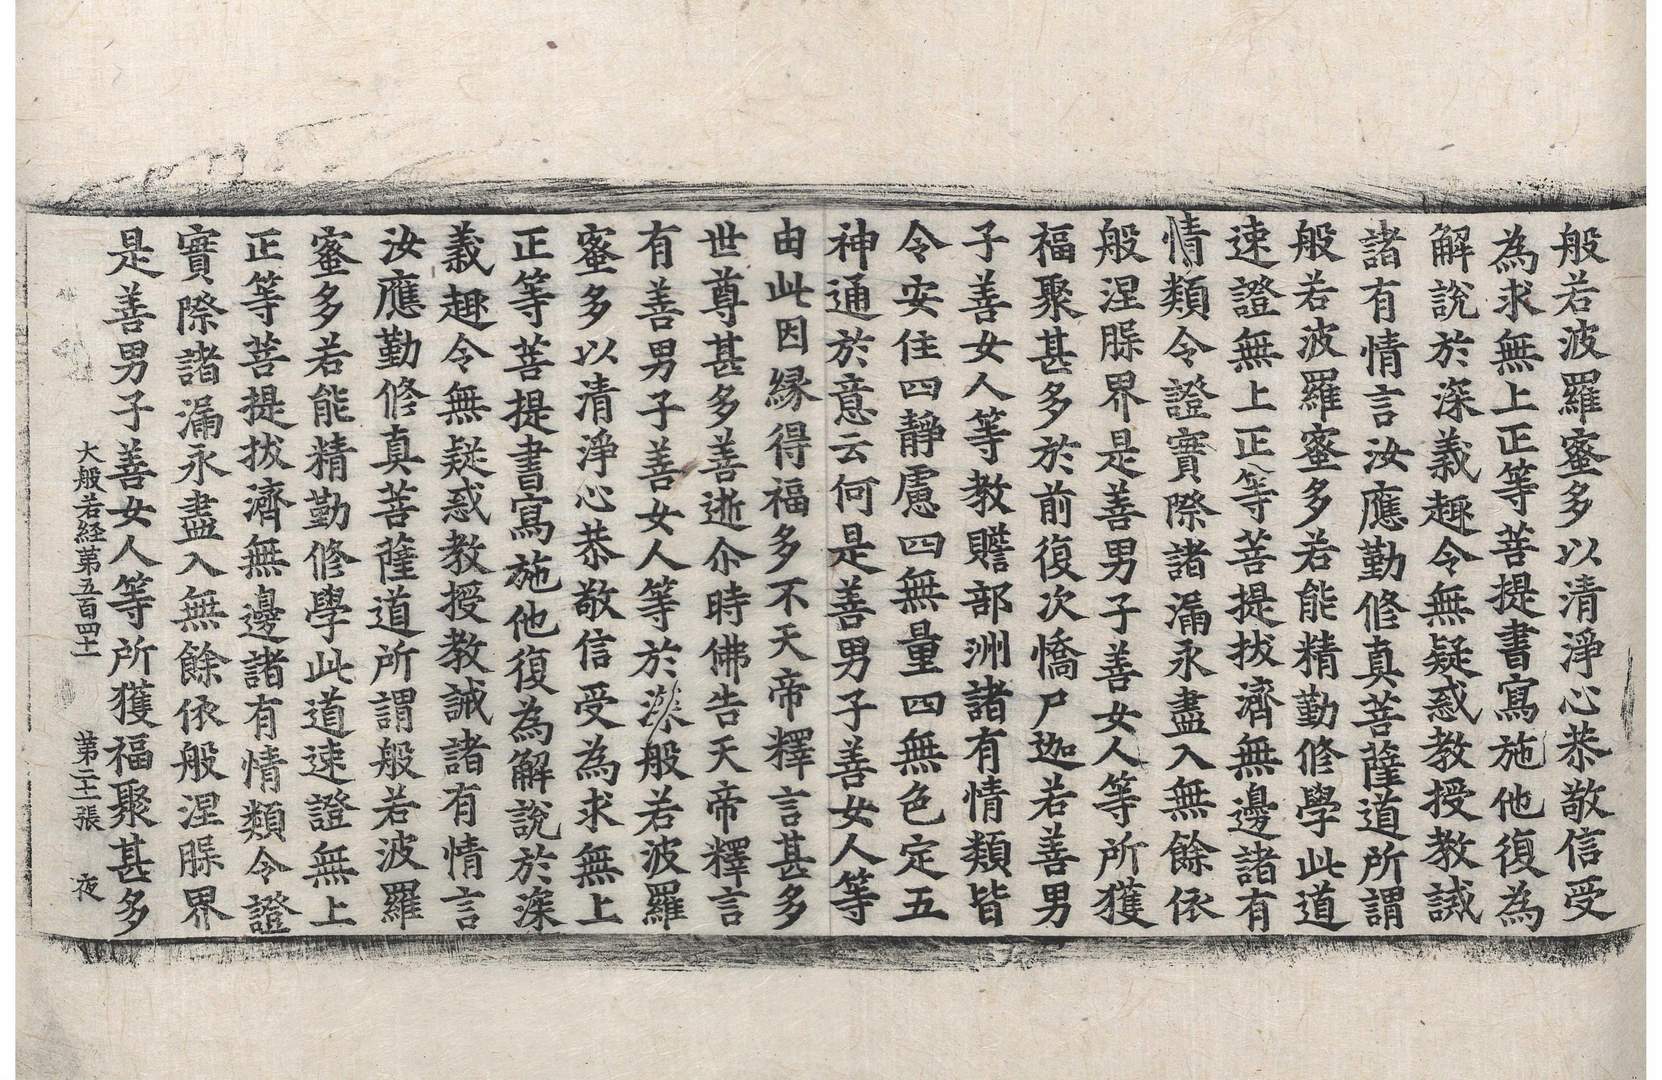 般若波羅蜜多以清淨心恭敬信受
為求無上正等菩提書寫施他復為
解說於深義趣令無疑惑教授教誡
諸有情言汝應勤修真菩薩道所謂
般若波羅蜜多若能精勤修學此道
速證無上正等菩提拔濟無邊諸有
情類令證實際諸漏永盡入無餘依
般涅槃界是善男子善女人等所獲
福聚甚多於前復次憍尸迦若善男
子善女人等教贍部洲諸有情類皆
令安住四靜慮四無量四無色定五
神通於意云何是善男子善女人等
由此因緣得福多不天帝釋言甚多
世尊甚多善逝尒時佛告天帝釋言
有善男子善女人等於深般若波羅
蜜多以清淨心恭敬信受為求無上
正等菩提書寫施他復為解說於深
義趣令無疑惑教授教誡諸有情言
汝應勤修真菩薩道所謂般若波羅
蜜多若能精勤修學此道速證無上
正等菩提拔濟無邊諸有情類令證
實際諸漏永盡入無餘依般涅槃界
是善男子善女人等所獲福聚甚多
大般若経苐五百四十一 苐二十張 夜